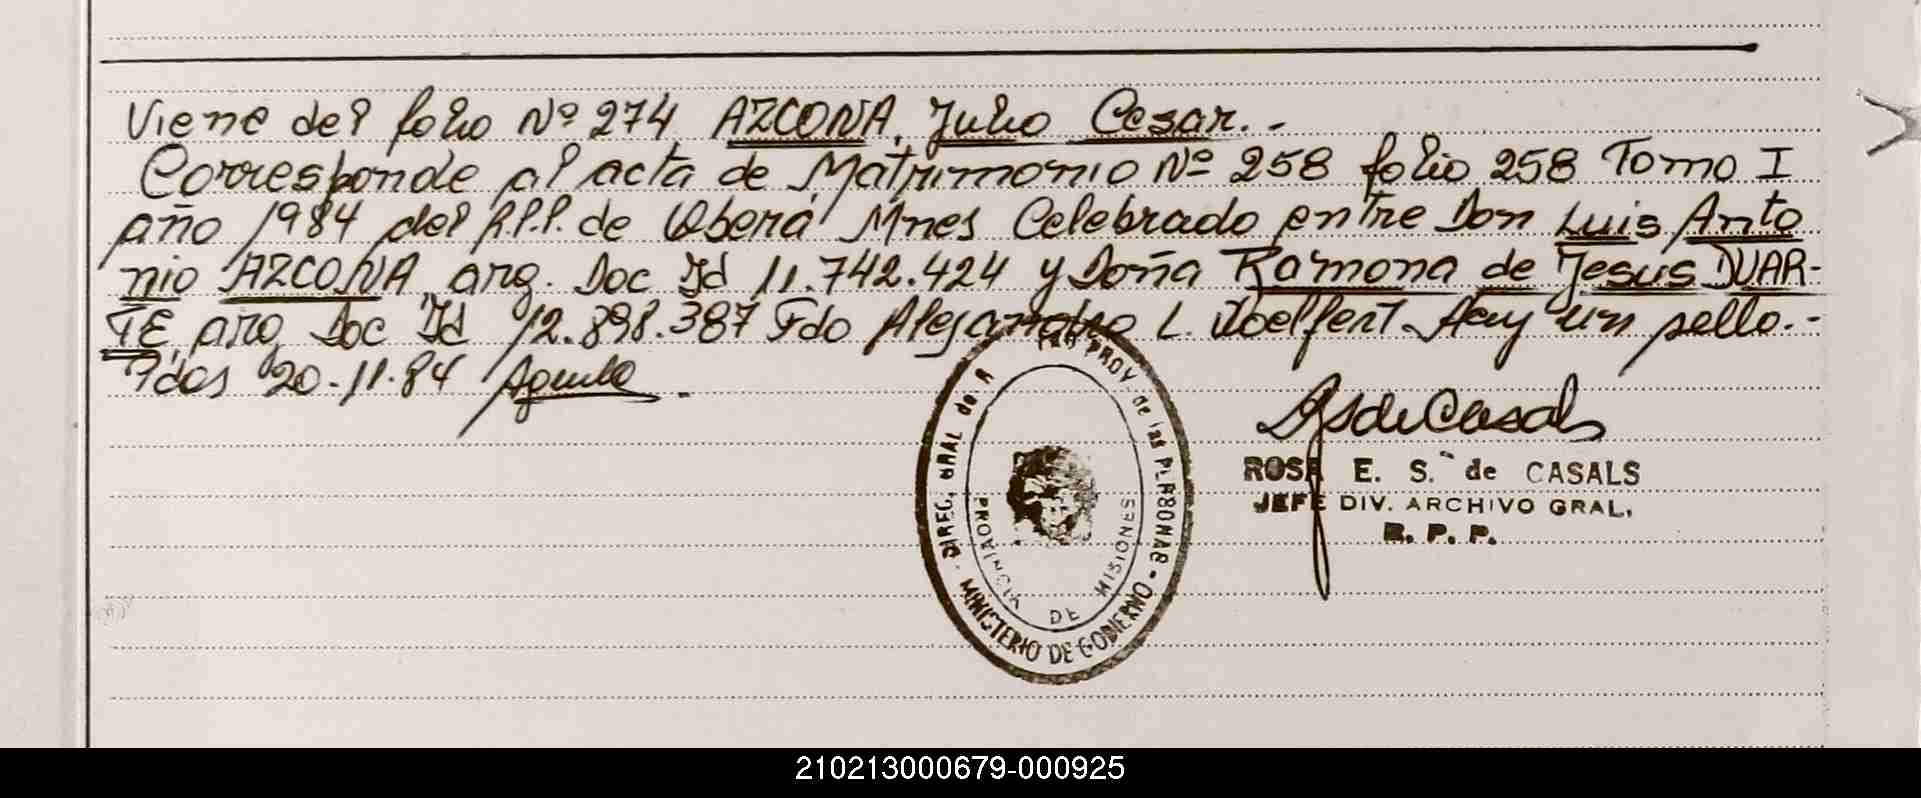 Viene del folio Nº 274 AZCONA, Julio Cesar.-
Corresponde al acta de Matrimonio Nº 258 folio 258 Tomo I
año 1984 del R.P.P. de Oberá Mnes Celebrado entre Don Luis Anto
nio AZCONA, arg. Doc Id 11.742.424 y Doña Ramona de Jesus DUAR-
TE, arg Doc Id 12.898.387 Fdo Alejandro L. Hay un sello.-
Pdas 20-11-84
DIREC. GRAL de PROV de las PERSONAS - MINISTERIO DE GOBIERNO -
PROVINCIA DE MISIONES
ROSA E. S. de CASALS
JEFE DIV. ARCHIVO GRAL.
R. P. P.
210213000679-000925